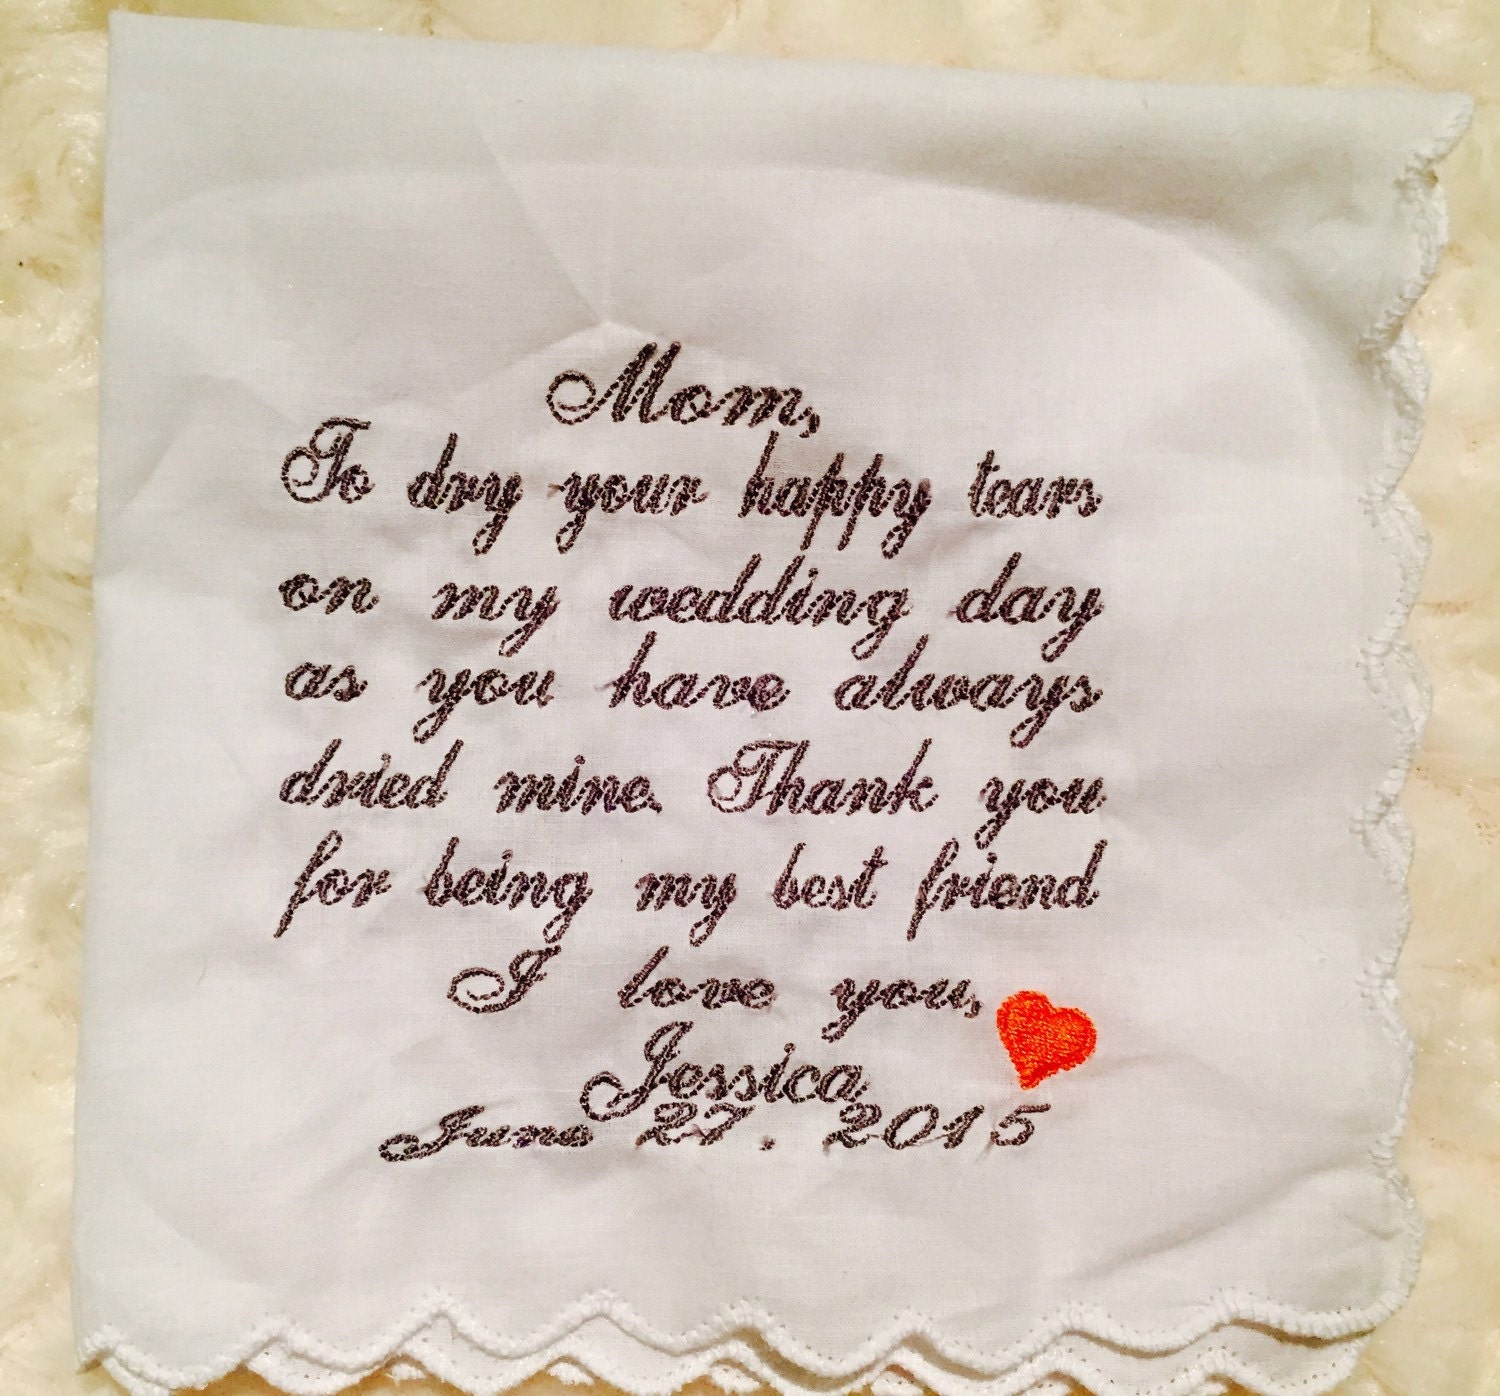 Mom,
To dry your happy tears
on my wedding day
as you have always
dried mine. Thank you
for being my best friend
I love you,
Jessica
June 27. 2015